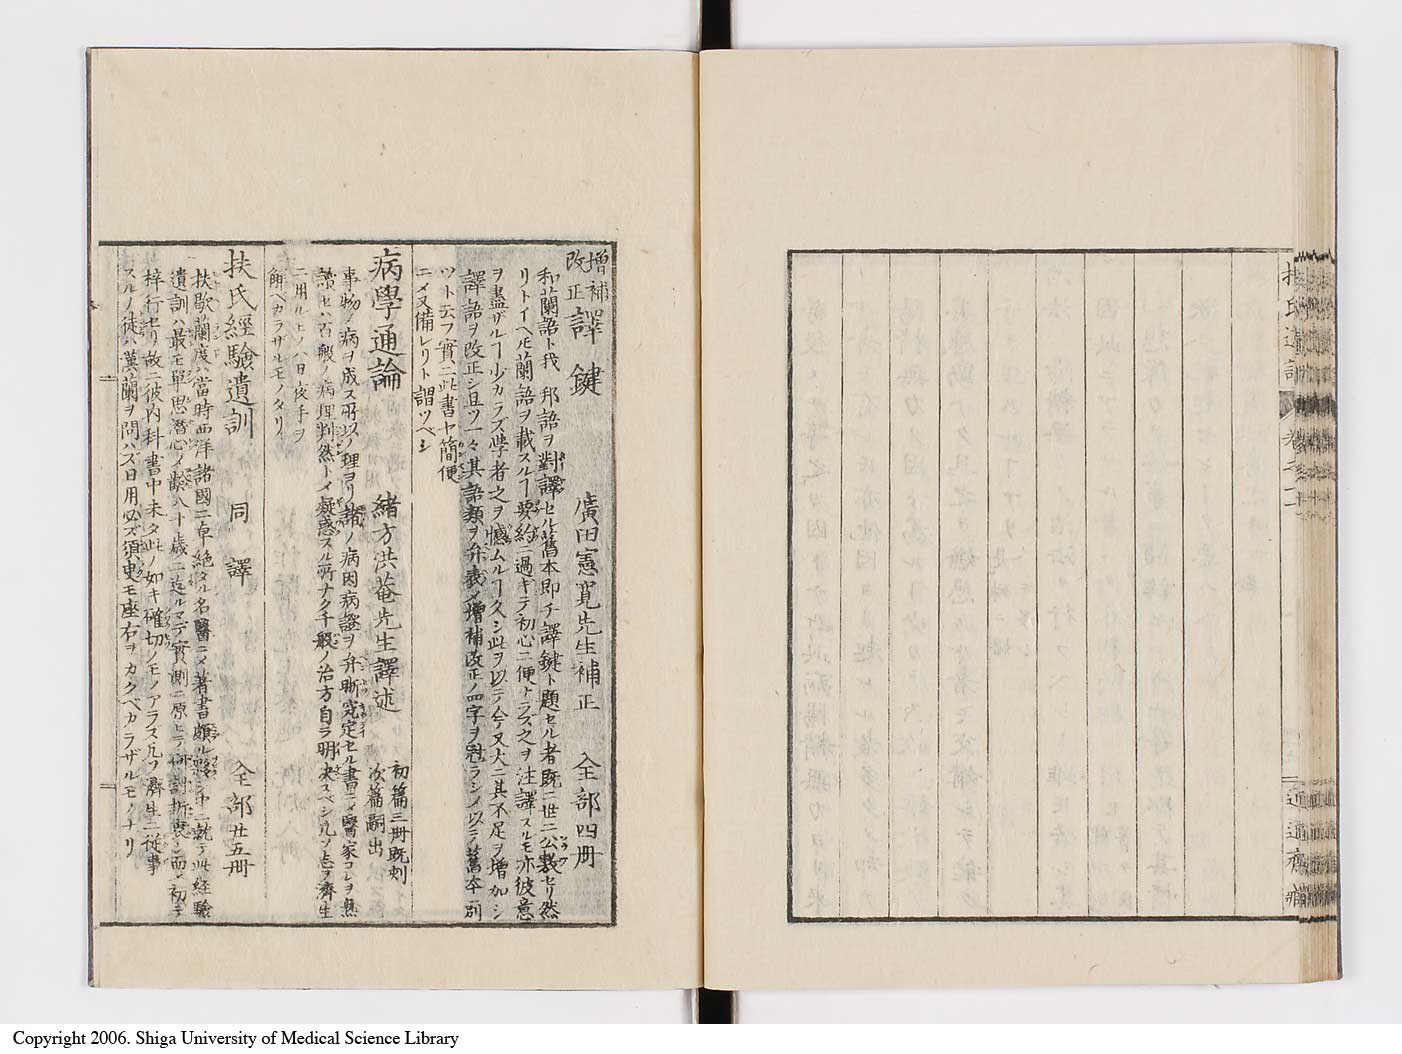 扶氏遺訓 卷之十
適適齋藏
増補
改正
譯鍵 廣田憲寛先生補正 全部四册
和蘭語ト我 邦語ヲ對譯セル舊本即チ譯鍵ト題セル者既ニ世ニ公製セリ然
リトイヘ𪜈蘭語ヲ載スルヿ要約ニ過ギテ初心ニ便トラズ之ヲ注譯スルモ亦彼意
ヲ盡ザルヿ少カラズ學者之ヲ憾ムルヿ久シ此ヲ以テ今又大ニ其不足ヲ增加シ
譯語ヲ改正シ且ツ一々其語類ヲ弁義メ增補改正ノ四字ヲ冠ラシメ以テ舊本ニ別
ツト云フ實ニ此書ヤ簡便
ニメ又備レリト謂ツベシ
病學通論 緒方洪菴先生譯述 初篇三册既刻
次篇嗣出
事物ノ病ヲ成ス所以ノ理ヨリ諸ノ病因病證ヲ弁晰究定セル書ニメ醫家コレヲ熟
讀セハ百般ノ病理判然トメ疑惑スル所ナク千般ノ治方自ラ明決スベシ凡ソ志ヲ濟生
ニ用ルヒノハ日夜手ヲ
觧ベカラザルモノタリ
扶氏經驗遺訓 同譯 全部廿五册
扶歇蘭度ハ當時西洋諸國ニ卓絶タル名醫ニメ著書頗ル夥シ中ニ就テ此經驗
遺訓ハ最モ單思潜心メ齡八十歳ニ迄ルマデ實測ニ原ヒテ研討折衷シ而メ初テ
梓行セリ故ニ彼内科書中未タ此ノ如キ確切ノモノアラス凡ソ濟生ニ從事
スルノ徒ハ漢蘭ヲ問ハズ日用必ズ須臾モ座右ヲカクベカラザルモノナリ
Copyright 2006. Shiga University of Medical Science Library